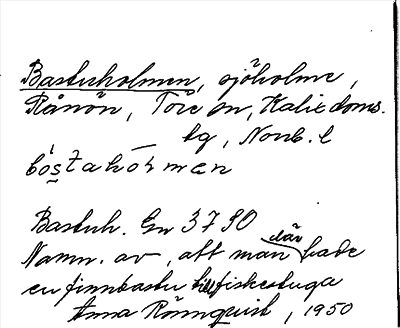 Bastuholmen, sjöholme,
Rånön, Töre sn, Kalix doms.
sg, Norrb. l
Bastuh. Gr 3790
Namn. av, att man där hade
en finnbastu till fiskestuga
Anna Rönnquist, 1950